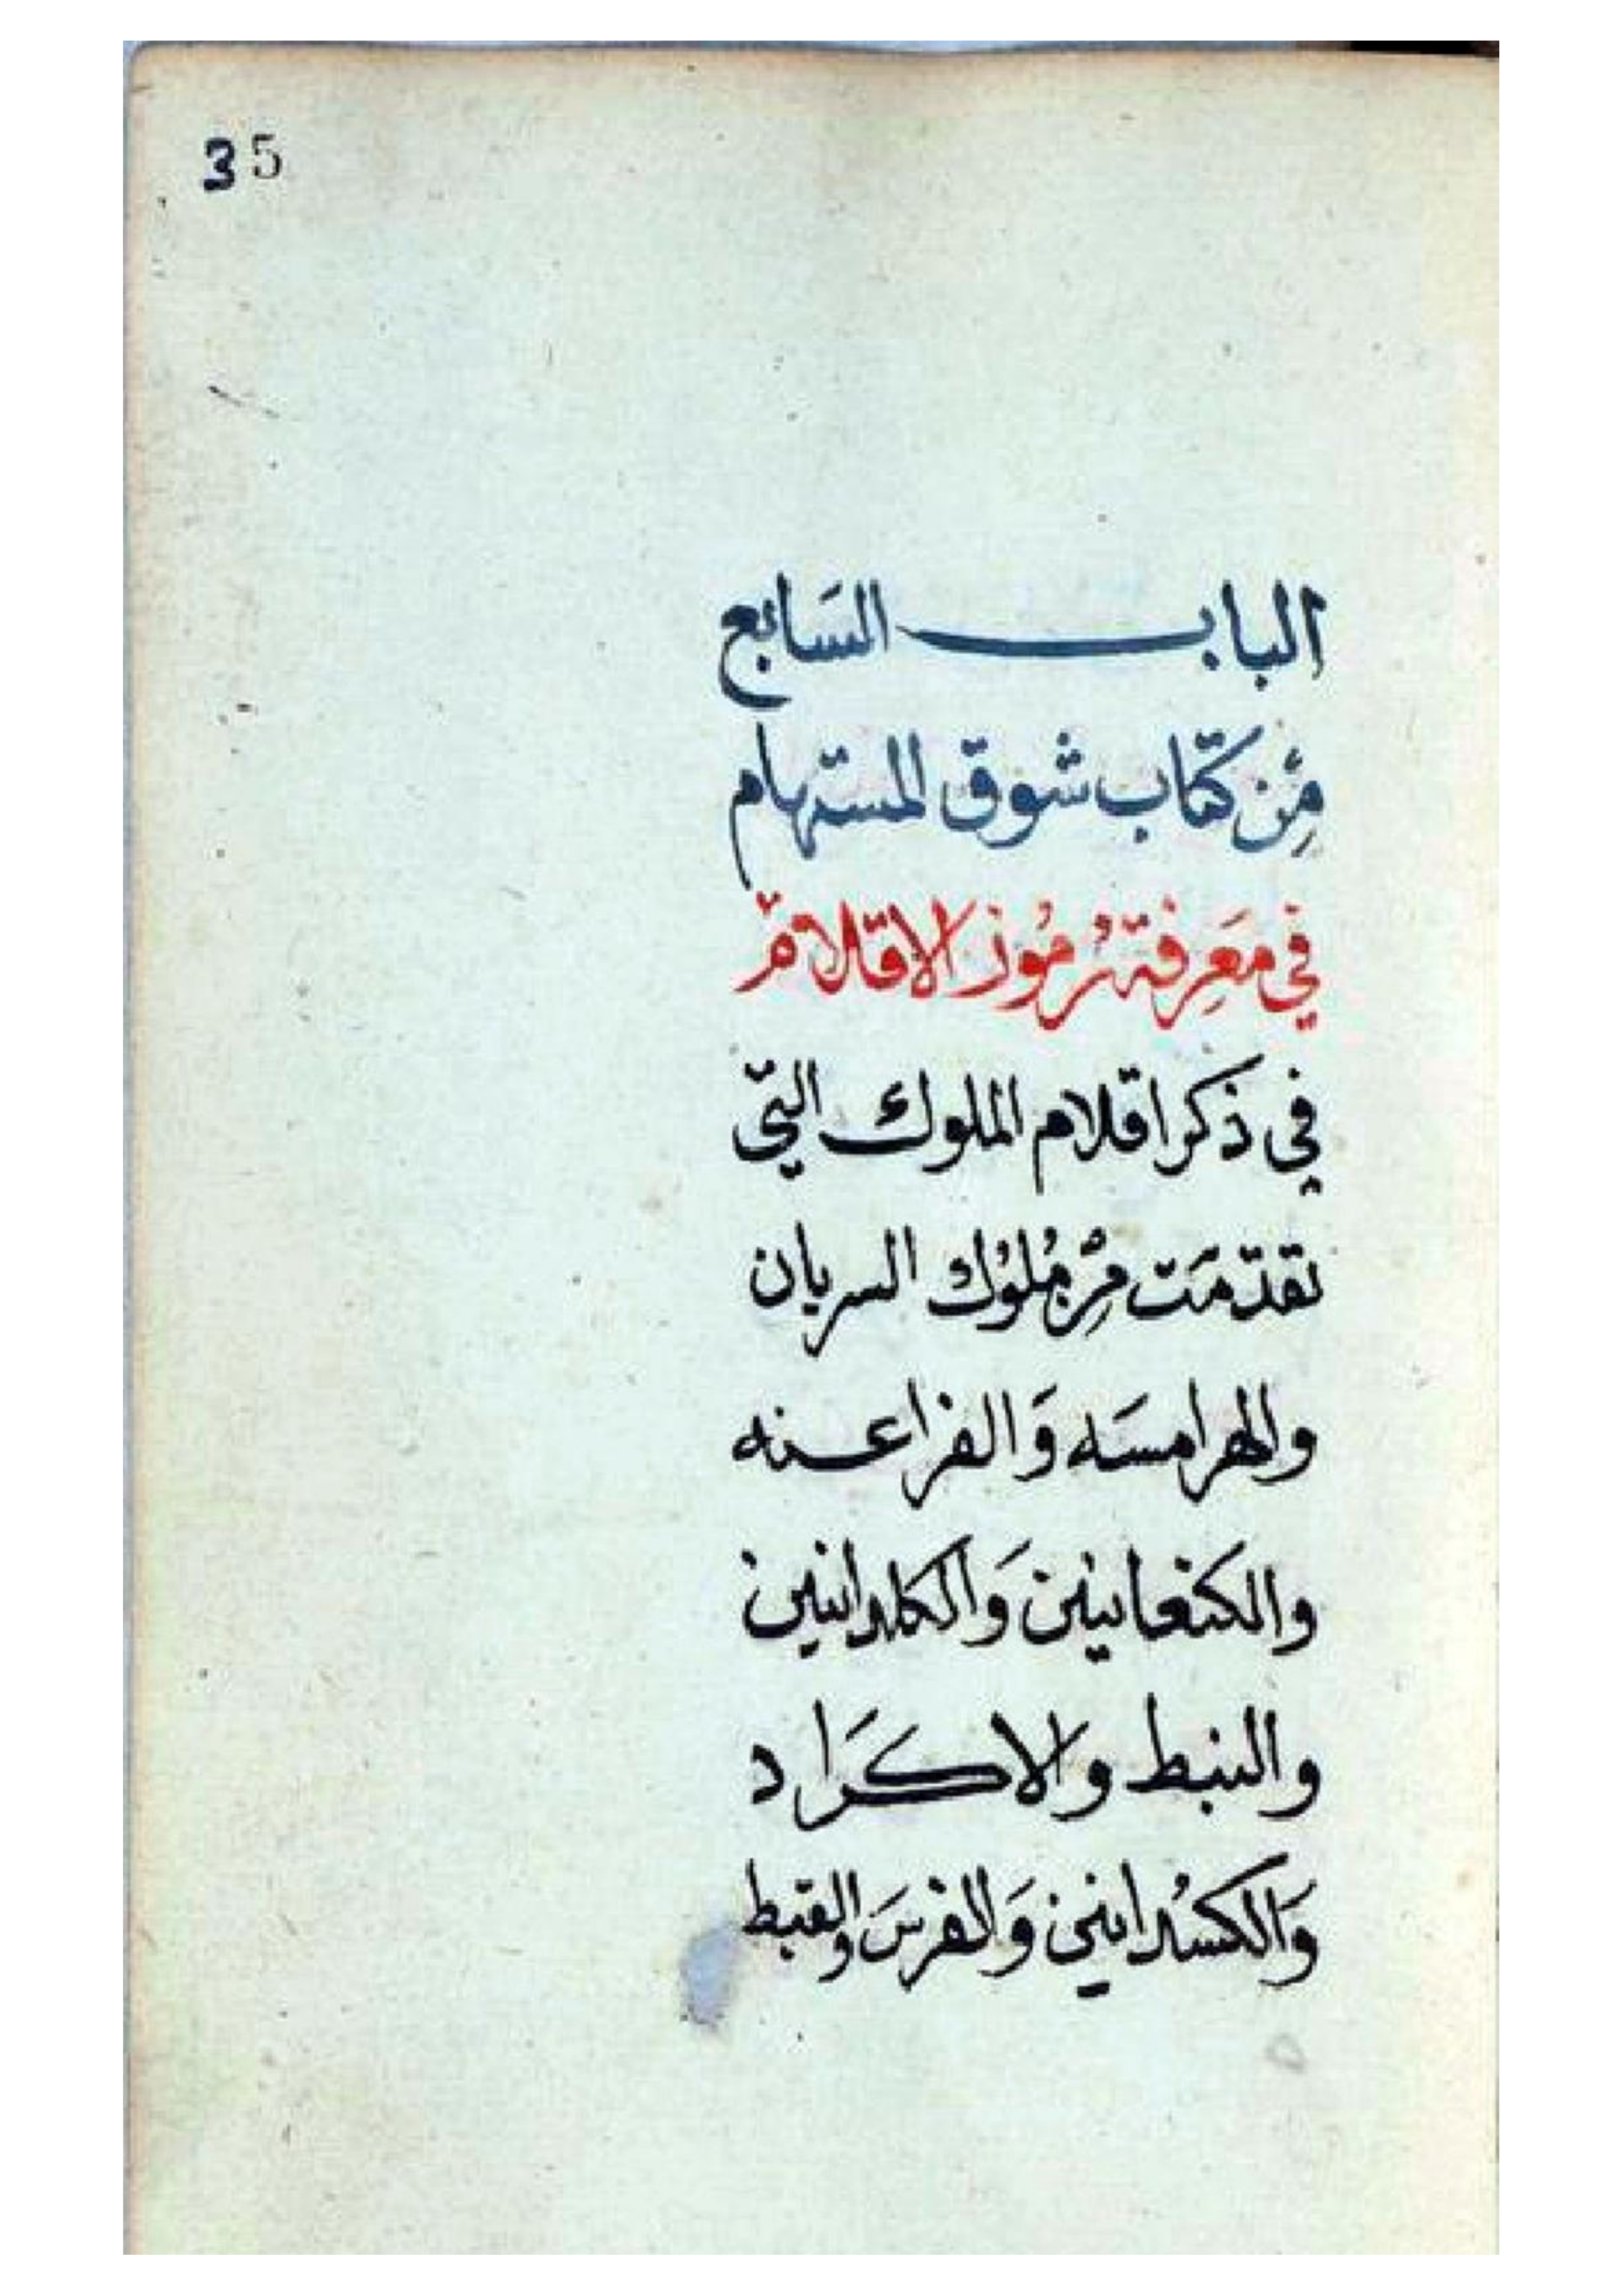 35
الباب السابع
من كتاب شوق المستهام
في معرفة رموز الاقلام
في ذكر اقلام الملوك التي
تقدمت من ملوك السريان
والهرامسه والفراعنه
والكنعانيين والكلدانيين
والنبط والاكراد
والكسدانيين والفرس والقبط